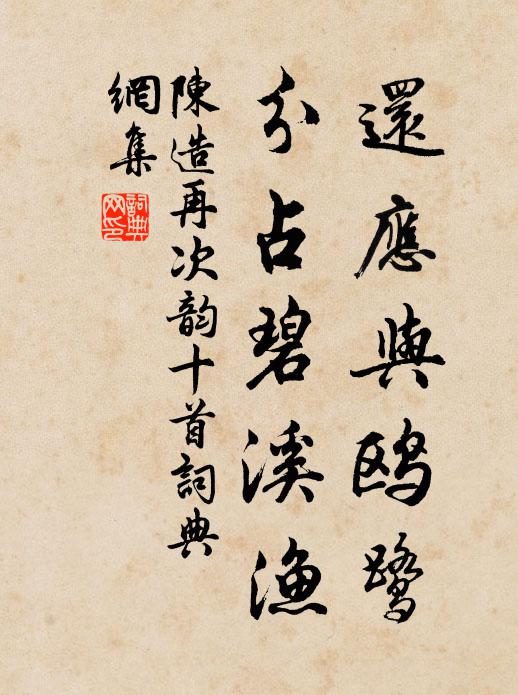 還應與鷗鷺
分占碧溪漁
陳造再次韵十首詞典
網集
詞典
网印